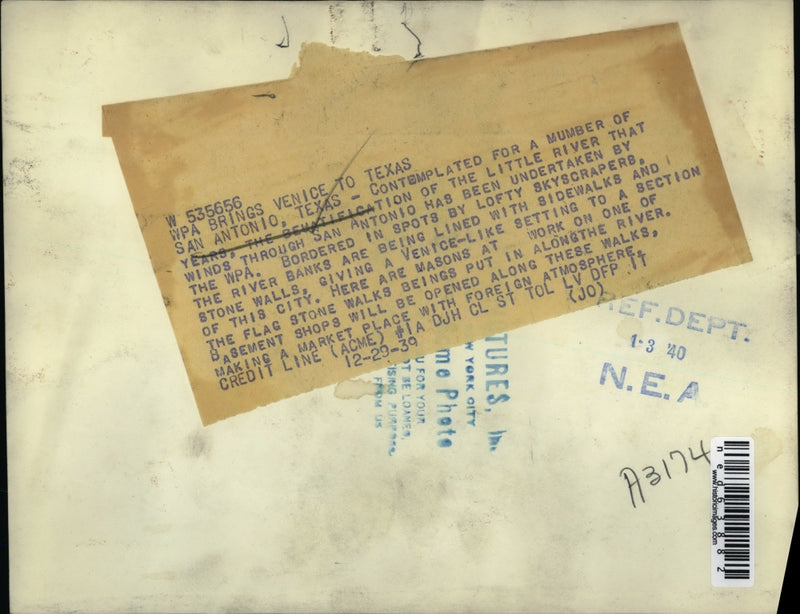 W 535656
WPA BRINGS VENICE TO TEXAS
SAN ANTONIO, TEXAS - CONTEMPLATED FOR A MUMBER OF
YEARS, THE BEAUTIFICATION OF THE LITTLE RIVER THAT
WINDS THROUGH SAN ANTONIO HAS BEEN UNDERTAKEN BY
THE WPA. BORDERED IN SPOTS BY LOFTY SKYSCRAPERS,
THE RIVER BANKS ARE BEING LINED WITH SIDEWALKS AND
STONE WALLS, GIVING A VENICE-LIKE SETTING TO A SECTION
OF THIS CITY. HERE ARE MASONS AT WORK ON ONE OF
THE FLAG STONE WALKS BEINGS PUT IN ALONGTHE RIVER.
BASEMENT SHOPS WILL BE OPENED ALONG THESE WALKS,
MAKING A MARKET PLACE WITH FOREIGN ATMOSPHERE.
CREDIT LINE (ACME) #1A DJH CL ST TOL LV DFP IT
12-29-39 (JO)
REF. DEPT.
1-3 '40
N.E.A
TURES, Inc.
W YORK CITY
me Photo
U FOR YOUR
OT BE LOANED,
ISING PURPOSE
FROM US
A3174
www.historicimages.com
ned63882